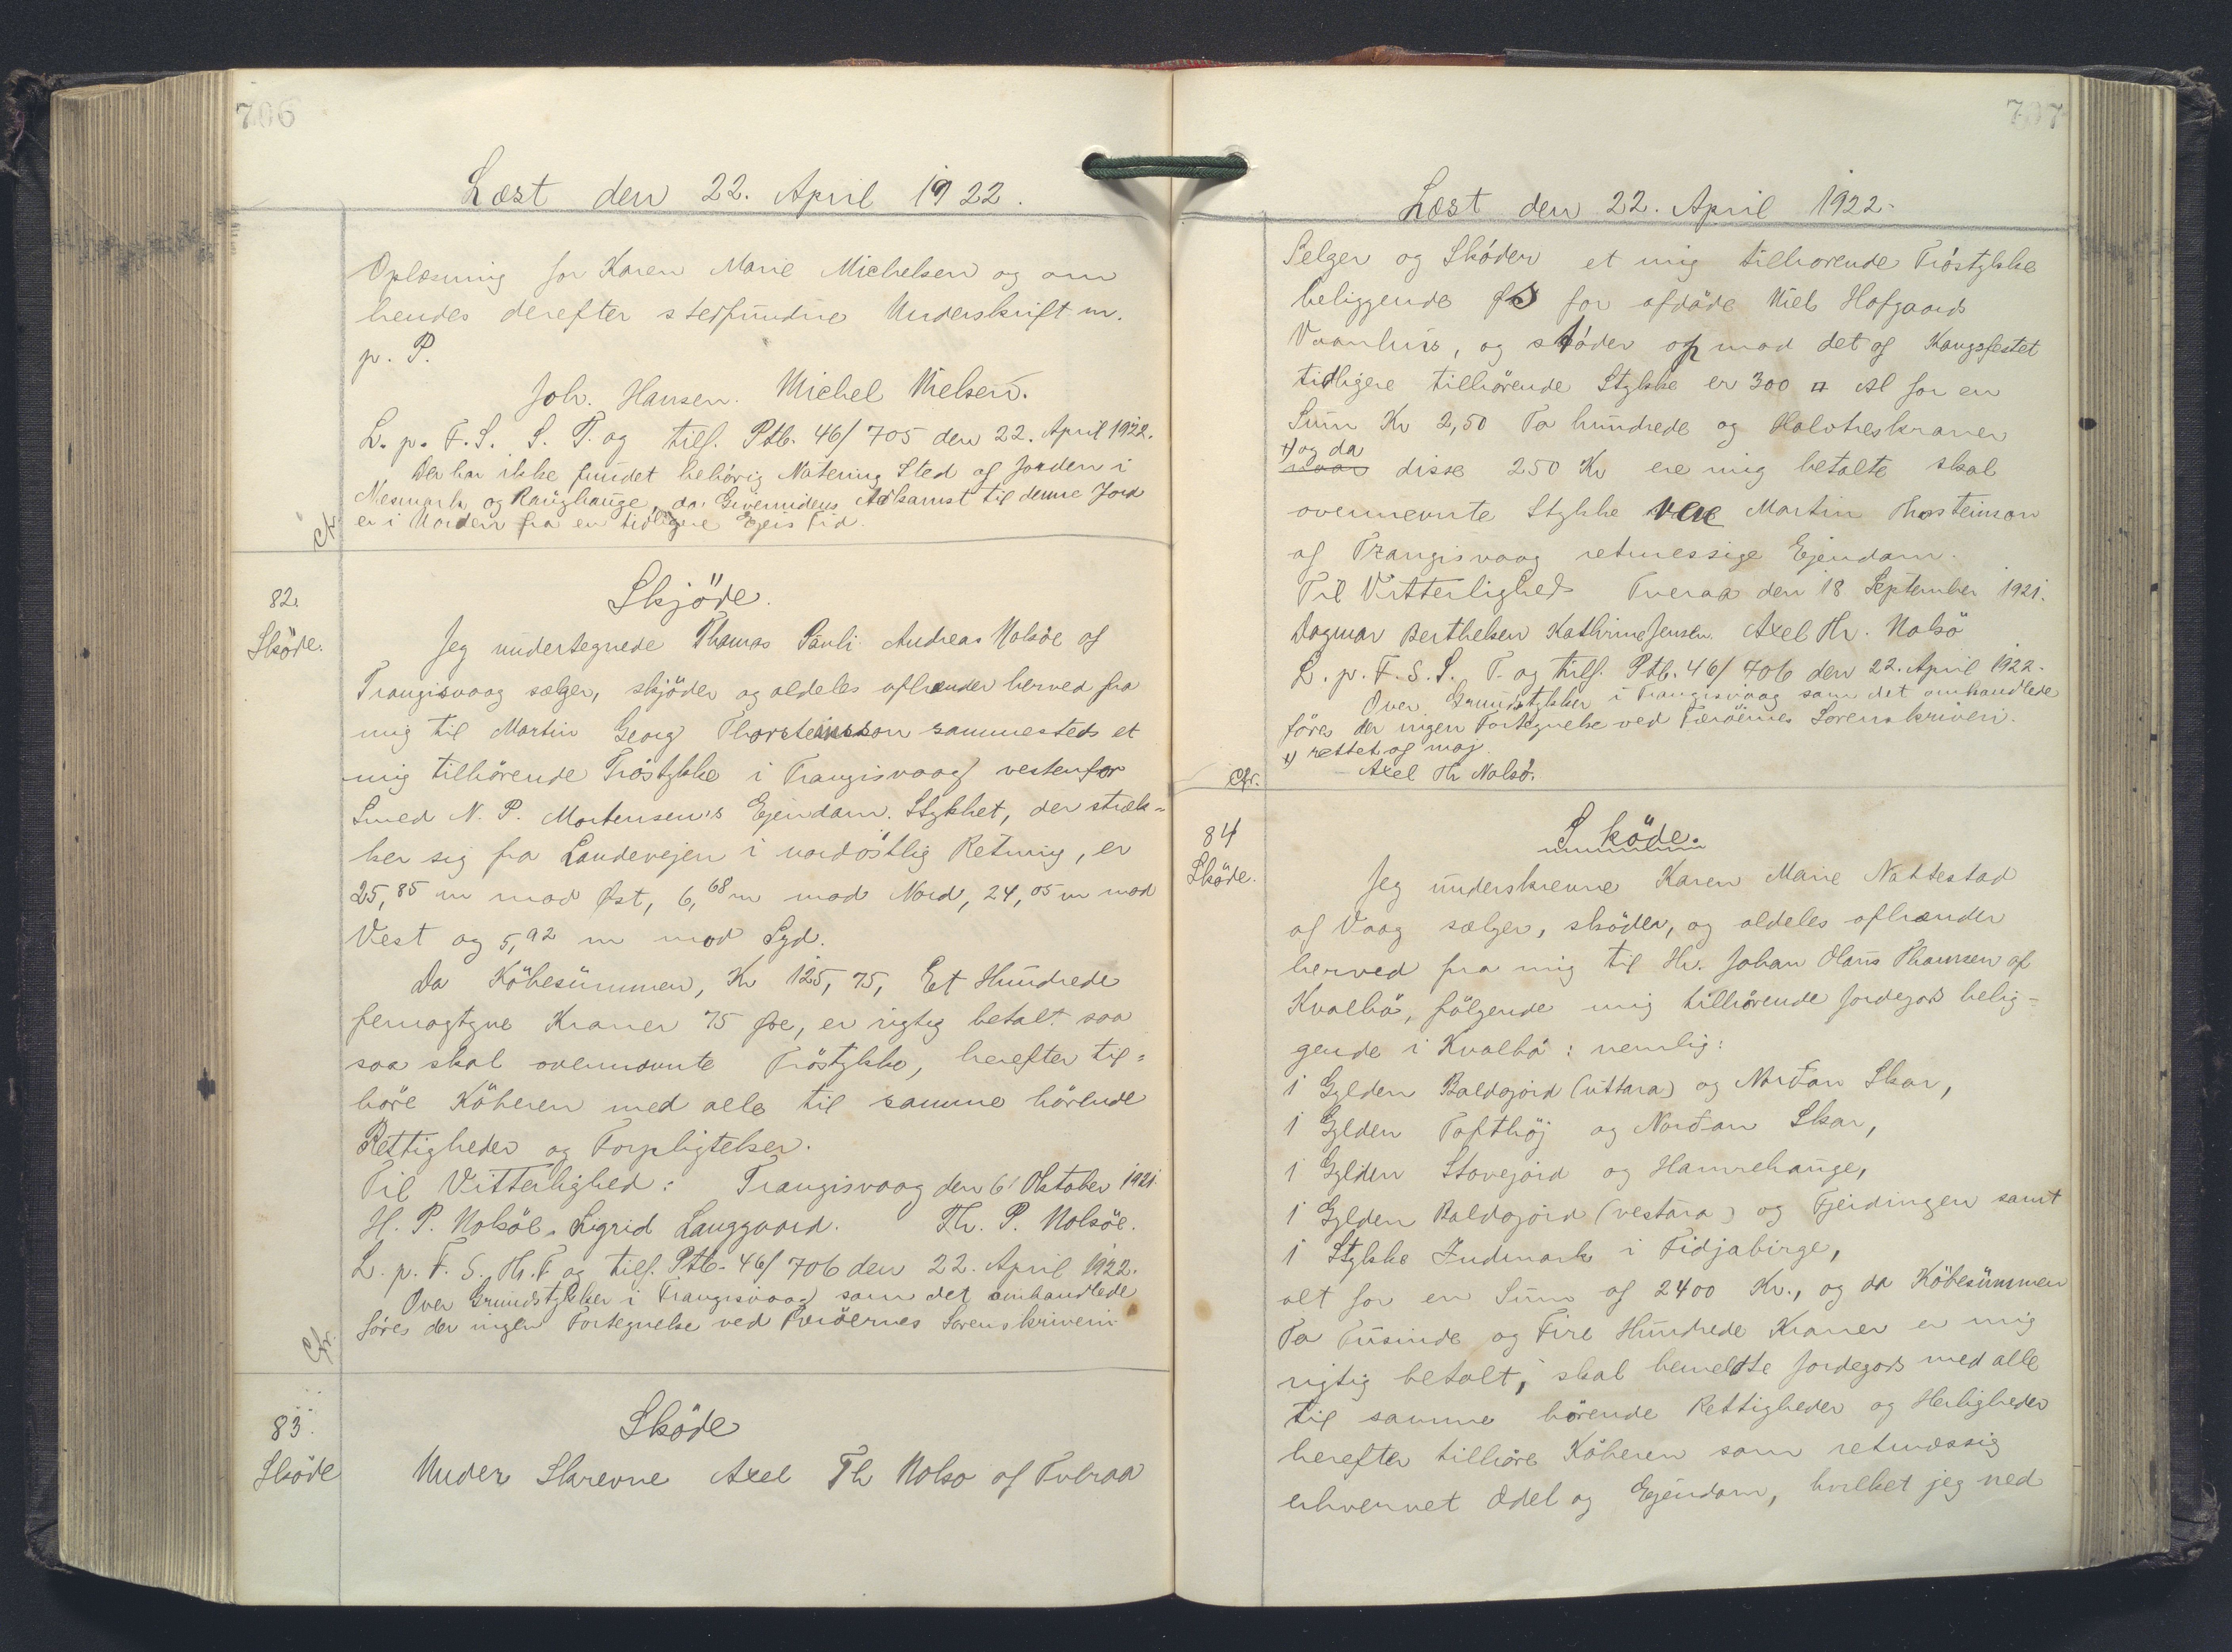 706
Læst den 22. April 1922.
Oplæsning for Karen Marie Michelsen og om
hendes derefter stedfundne Underskrift m.
p. P.
Joh. Hansen. Michel Nielsen.
L. p. F. S. S. T. og tilf. Ptb. 46/705 den 22. April 1922.
Der har ikke fundet behörig Notering Sted af Jorden i
og da Giverindens Adkomst til denne Jord
er i Orden fra en tidligere Ejers Tid.
Cfr.
82.
Sköde.
Skjöde.
Jeg undertegnede Thomas Pauli Andreas Nolsöe af
Trangisvaag sælger, skjöder og aldeles afhænder herved fra
mig til Martin Georg Thorsteinsson sammesteds et
mig tilhörende Tröstykke i Trangisvaag vestenfor
Smed N. P. Mortensen's Ejendom. Stykket, der stræk-
ker sig fra Landevejen i nordöstlig Retning, er
25,85 m mod Øst, 6,68 m mod Nord, 24,05 m mod
Vest og 5,92 m mod Syd.
Da Köbesummen, Kr 125,75, Et Hundrede
femogtyve Kroner 75 Øre, er rigtig betalt saa
saa skal ovennævnte Tröstykke, herefter til=
höre Köberen med alle til samme hörende
Rettigheder og Forpligtelser.
Til Vitterlighed: Trangisvaag den 6' Oktober 1921
H. P. Nolsöe. Sigrid Langgaard. Th. P. Nolsöe.
L. p. F. S. Hr. F. og tilf. Ptb. 46/706 den 22. April 1922.
Over Grundstykker i Trangisvaag som det omhandlede
föres der ingen Fortegnelse ved Færöernes Sorenskriveri
Cfr.
83.
Sköde
Sköde
Under Skrevne Axel Th Nolso af Tveraa
707
Læst den 22. April 1922.
Selger og Sköder et mig tilhorende Tröstykke
beliggende for afdöde Niels Hofgaards
Vaanhus, og stöder op mod det af Kongsfestet
tidligere tilhörende Stykke er 300 □ Al for en
Sum Kr 2,50 To hundrede og Halvtreskroner
x) og da
disse 250 Kr ere mig betalte skal
ovennevnte Stykke være Martin Thosteinson
af Trangisvaag retmessige Ejendom.
Til Vitterlighed Tveraa den 18 September 1921.
Dagmar Berthelsen Kathrine Jensen. Axel Th. Nolsö
L. p. F. S. S. T. og tilf. Ptb. 46/706 den 22. April 1922.
Over Grundstykker i Trangisvaag som det omhandlede
föres der ingen Fortegnelse ved Færöernes Sorenskriveri.
x) rettet af maj.
Axel Th Nolsö.
Cfr.
84
Sköde.
Sköde.
Jeg underskrevne Karen Marie Nattestad
af Vaag sælger, sköder, og aldeles afhænder
herved fra mig til Hr. Johan Olaus Thomsen af
Kvalbö, fölgende mig tilhörende Jordegods belig-
gende i Kvalbö: nemlig:
1 Gylden Baldogjord (uttara) og Norðan Skar,
1 Gylden Tofthöj og Norðan Skar,
1 Gylden Stovejord og Hamrehauge,
1 Gylden Baldogjord (vestara) og Fjeidingen samt
1 Stykke Indmark i Fidjabirge,
alt for en Sum af 2400 Kr., og da Köbesummen
To Tusinde og Fire Hundrede Kroner er mig
rigtig betalt, skal bemeldte Jordegods med alle
til samme hörende Rettigheder og Herligheder
herefter tilhöre Köberen som retmæssig
erhvervet Odel og Ejendom, hvilket jeg ved